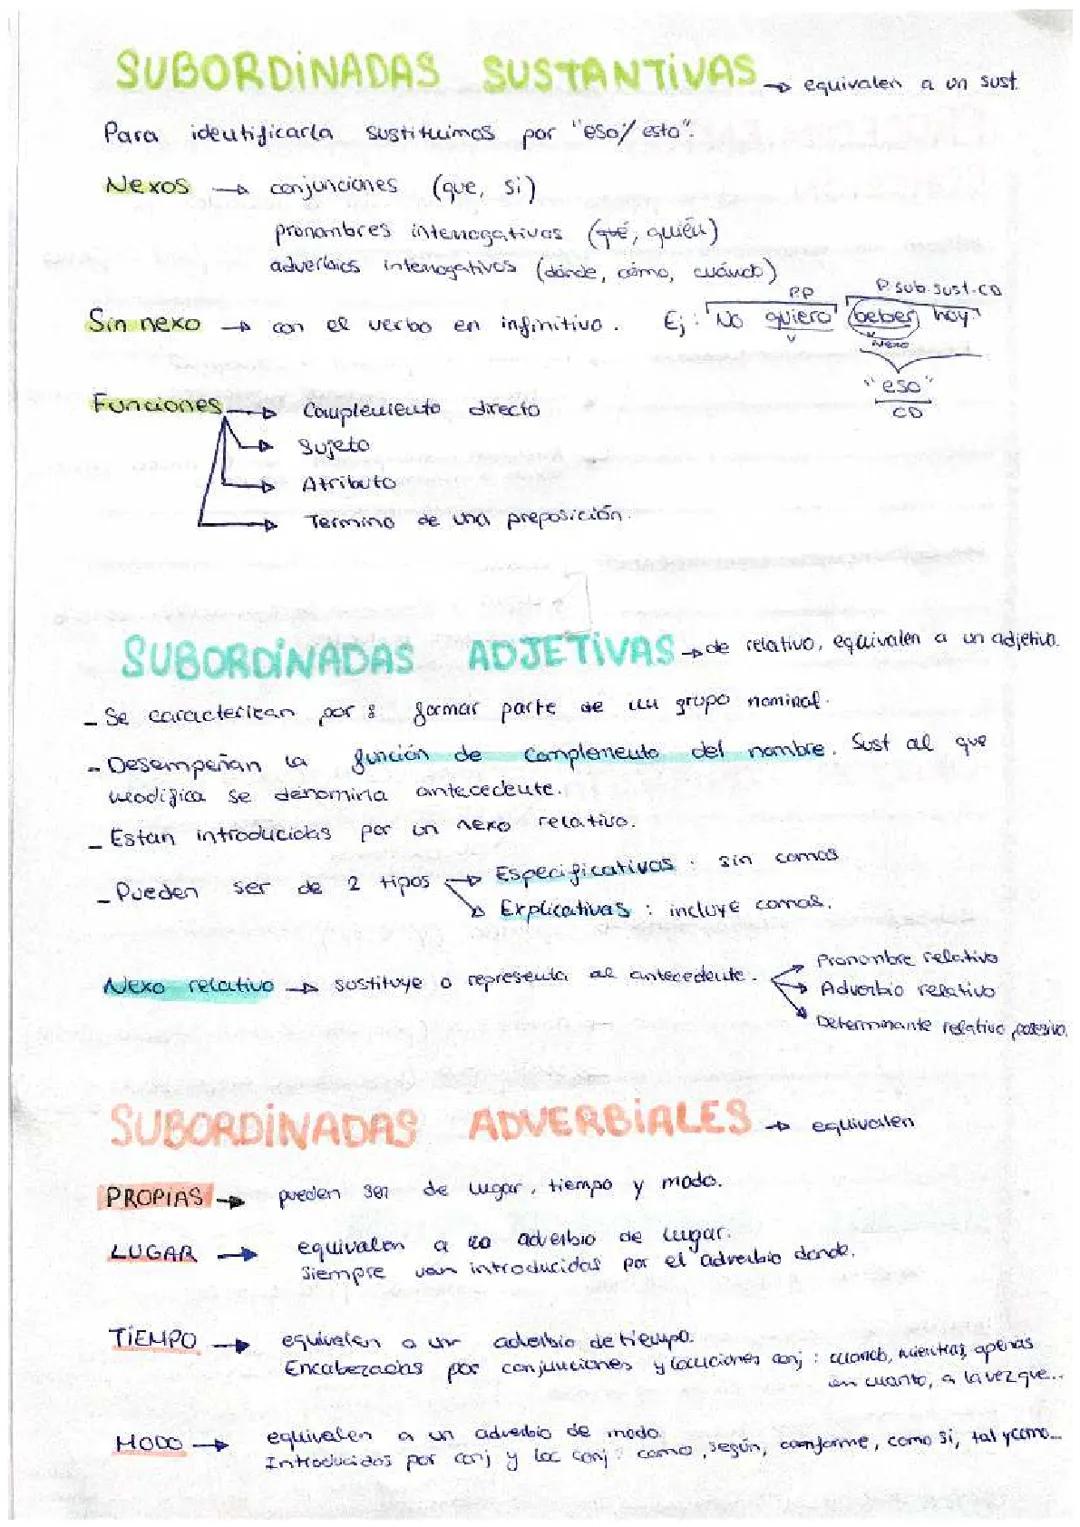 SUBORDINADAS SUSTANTIVAS → equivalen a un sust.
Para identificarla sustituimos por "eso/esto".
Nexos → conjunciones (que, si)
pronombres interrogativos (qué, quién)
adverbios interrogativos (dónde, cómo, cuándo)
PP P.sub.sust.CD
Sin nexo → con el verbo en infinitivo. Ej: "No quiero beber hoy"
V Nexo
"eso"
CD
Funciones → Complemento directo
→ Sujeto
→ Atributo
→ Termino de una preposición.
SUBORDINADAS ADJETIVAS → de relativo, equivalen a un adjetivo.
- Se caracterizan por: formar parte de un grupo nominal.
- Desempeñan la función de complemento del nombre. Sust al que
modifica se denomina antecedente.
- Estan introducidas por un nexo relativo.
- Pueden ser de 2 tipos → Especificativas: sin comas
→ Explicativas: incluye comas.
Nexo relativo → sustituye o representa al antecedente. → Pronombre relativo
→ Adverbio relativo
→ Determinante relativo posesivo.
SUBORDINADAS ADVERBIALES → equivalen
PROPIAS → pueden ser de lugar, tiempo y modo.
LUGAR → equivalen a adverbio de lugar.
Siempre van introducidas por el adverbio donde.
TIEMPO → equivalen a un adverbio de tiempo.
Encabezadas por conjunciones y locuciones conj: cuando, mientras, apenas
en cuanto, a la vez que...
MODO → equivalen a un adverbio de modo.
Introducidas por conj y loc conj: como, según, conforme, como si, tal y como...